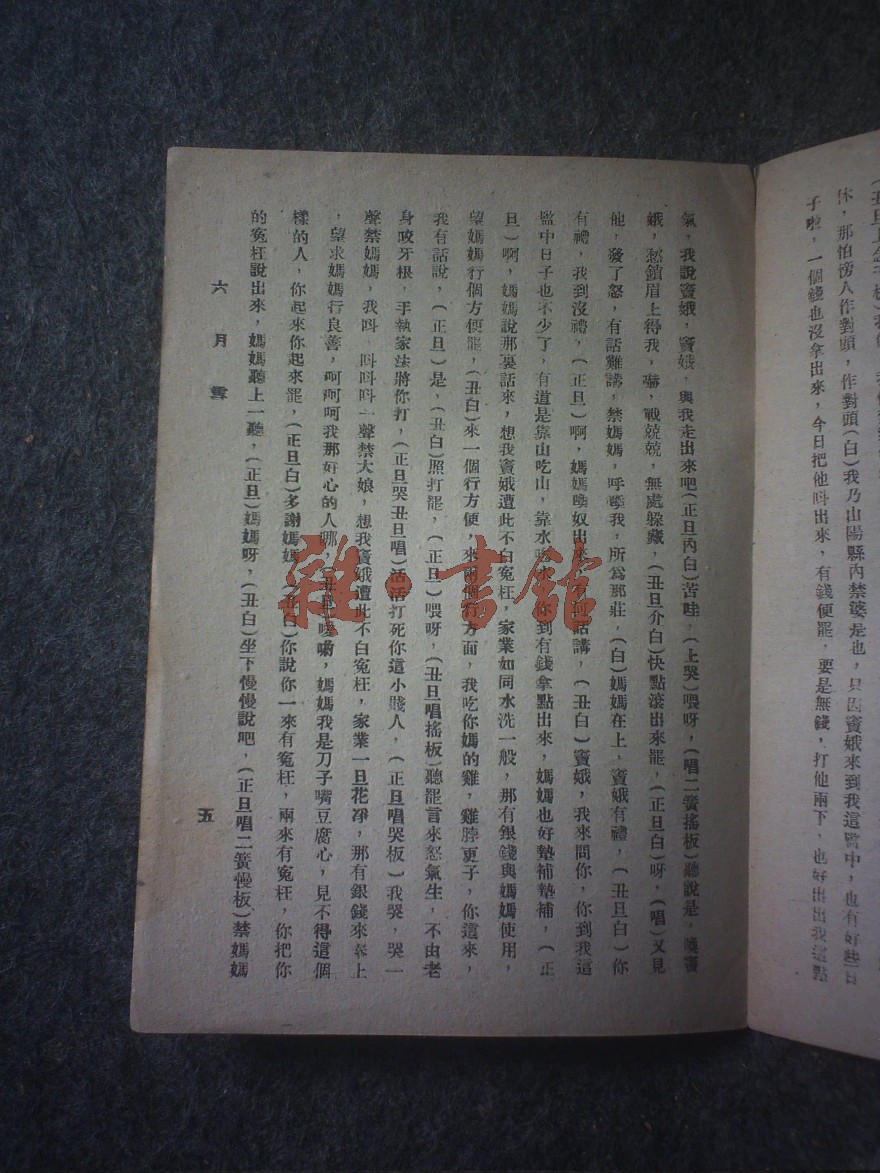 休，那怕傍人作對頭，作對頭（白）我乃山陽縣內禁婆是也，只因竇娥來到我這監中，也有好些日
子啦，一個錢也沒拿出來，今日把他呌出來，有錢便罷，要是無錢，打他兩下，也好出出我這點
氣，我說竇娥，竇娥，與我走出來吧（正旦內白）苦哇，（上哭）喂呀，（唱二簧搖板）聽說是，喚竇
娥，愁鎖眉上得我，嚇，戰兢兢，無處躲藏，（丑旦介白）快點滾出來罷，（正旦白）呀，（唱）又見
他，發了怒，有話難講，禁媽媽，呼喚我，所爲那莊，（白）媽媽在上，竇娥有禮，（丑旦白）你
有禮，我到沒禮，（正旦）啊，媽媽喚奴出來，有何話講，（丑白）竇娥，我來問你，你到我這
監中日子也不少了，有道是靠山吃山，靠水喝水，你到有錢拿點出來，媽媽也好墊補墊補，（正
旦）啊，媽媽說那裏話來，想我竇娥遭此不白冤枉，家業如同水洗一般，那有銀錢與媽媽使用，
望媽媽行個方便罷，（丑白）來一個行方便，來兩個行方面，我吃你媽的雞，雞脖更子，你這來，
我有話說，（正旦）是，（丑白）照打罷，（正旦）喂呀，（丑旦唱搖板）聽罷言來怒氣生，不由老
身咬牙根，手執家法將你打，（正旦哭丑旦唱）活活打死你這小賤人，（正旦唱哭板）我哭，哭一
聲禁媽媽，我呌 呌呌呌一聲禁大娘，想我竇娥遭此不白冤枉，家業一旦花凈，那有銀錢來奉上
，望求媽媽行良善，呵呵呵我那好心的人哪，（丑旦）噯喲，媽媽我是刀子嘴豆腐心，見不得這個
樣的人，你起來你起來罷，（正旦白）多謝媽媽，（丑白）你說你一來有冤枉，兩來有冤枉，你把你
的冤枉說出來，媽媽聽上一聽，（正旦）媽媽呀，（丑白）坐下慢慢說吧，（正旦唱二簧慢板）禁媽媽
六月雪
五
雜·書館